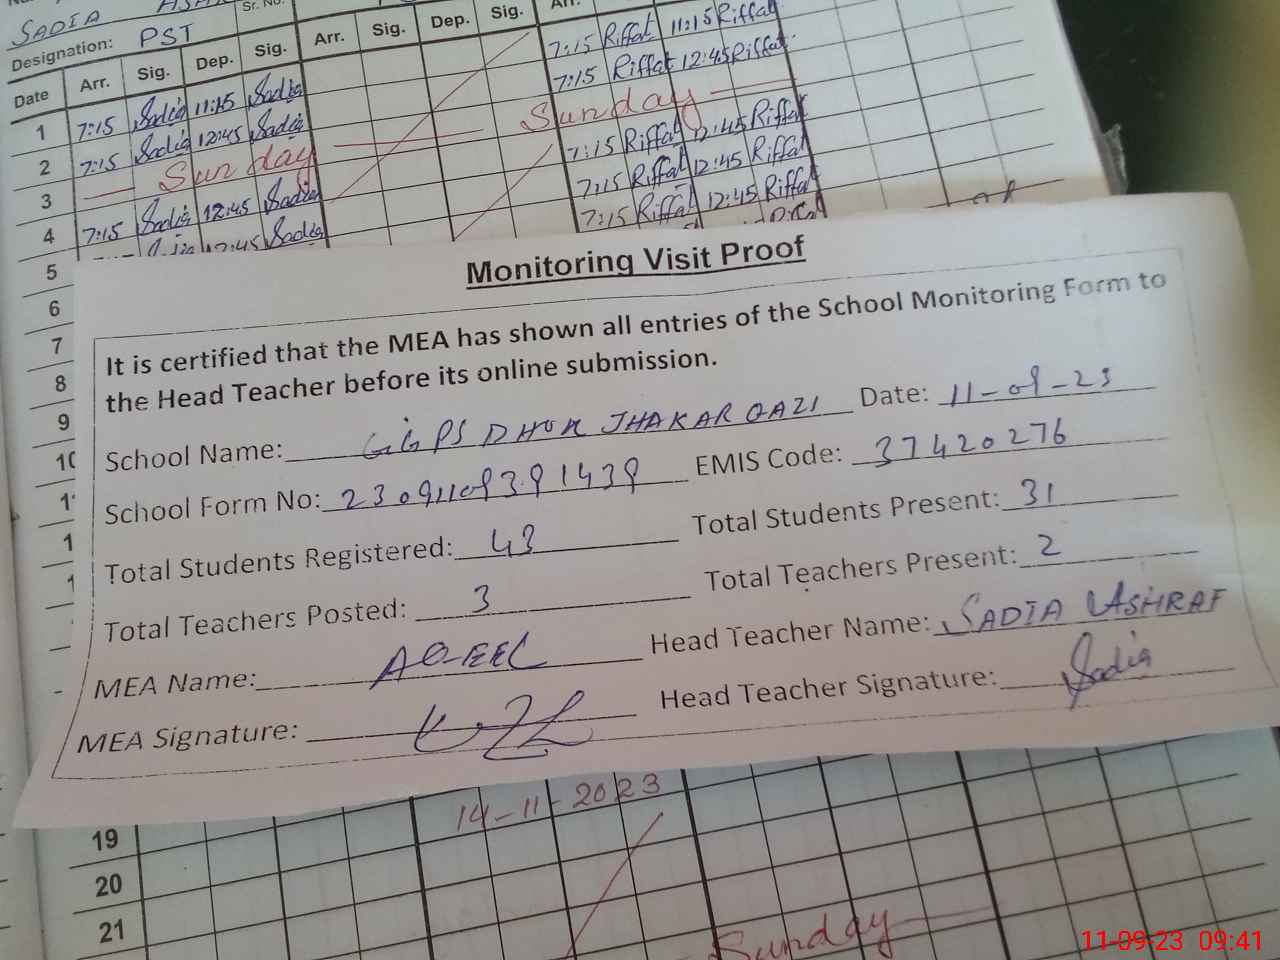 SADIA
Sr. No.
Designation: PST
Date Arr. Sig. Dep. Sig. Arr. Sig. Dep. Sig. Arr.
1 7:15 Sadia 11:15 Sadia 7:15 Riffat 11:15 Riffat
2 7:15 Sadia 12:45 Sadia 7:15 Riffat 12:45 Riffat
3 Sunday Sunday
4 7:15 Sadia 12:45 Sadia 7:15 Riffat 12:45 Riffat
5 12:45 Sadia 7:15 Riffat 12:45 Riffat
6 7:15 Riffat 12:45 Riffat
7
8
9
10
Monitoring Visit Proof
It is certified that the MEA has shown all entries of the School Monitoring Form to
the Head Teacher before its online submission.
School Name: GGPS DHOK JHAKAR QAZI Date: 11-09-23
School Form No: EMIS Code: 37420276
Total Students Registered: 43 Total Students Present: 31
Total Teachers Posted: 3 Total Teachers Present: 2
MEA Name: AQEEL Head Teacher Name: SADIA ASHRAF
MEA Signature: Head Teacher Signature: Sadia
14-11-2023
19
20
21
Sunday
11-09-23 09:41